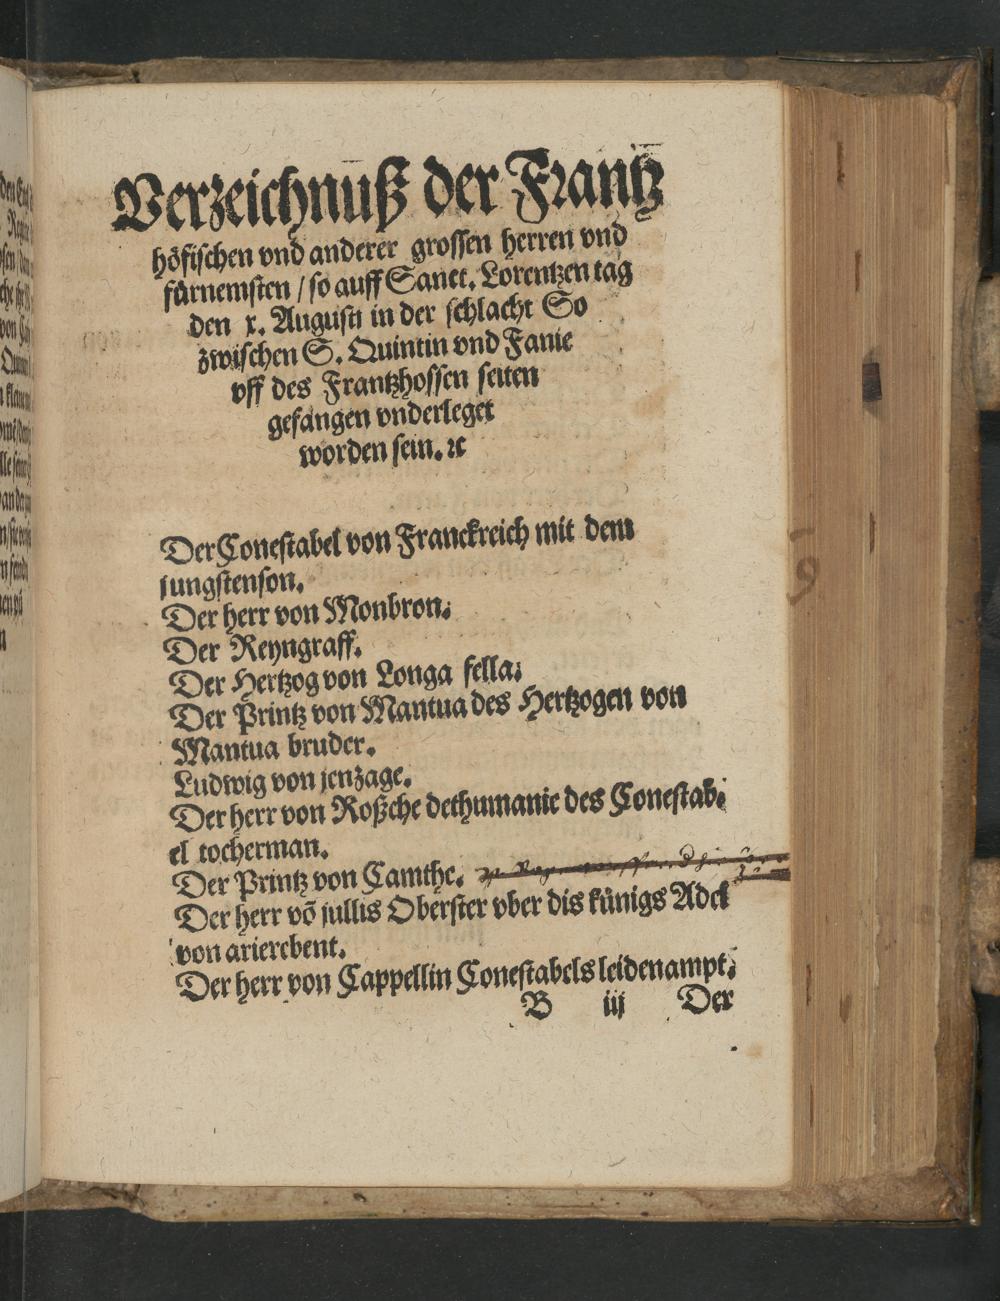 Verzeichnuß der Frantz
höfischen vnd anderer grossen herren vnd
fürnemsten / so auff Sanct. Lorentzen tag
den x. Augusti in der schlacht So
zwischen S. Quintin vnd Fanie
vff des Frantzhossen seiten
gefangen vnderleget
worden sein. ꝛc
Der Conestabel von Franckreich mit dem
jungsten son.
Der herr von Monbron.
Der Reyngraff.
Der Hertzog von Longa fella.
Der Printz von Mantua des Hertzogen von
Mantua bruder.
Ludwig von jenzage.
Der herr von Roßche dethumanie des Conestab-
el tocherman.
Der Printz von Camthe.
Der herr võ jullis Oberster vber dis künigs Adel
von arierebent.
Der herr von Cappellin Conestabels leidenampt.
B iij Der
9